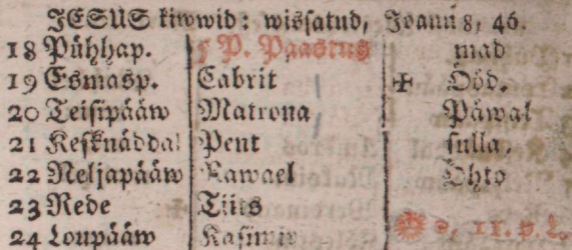 JESUS kiwwid: wissatud, Joann 8, 46.
18 Pühhap. 5 P. Paastus mad
19 Esmasp. Cabrit ✠ Ööd.
20 Teisipääw Matrona Päwal
21 Kesknäddal Pent sulla,
22 Neljapääw Rawael Öhto
23 Rede Tiits 11. p. l.
24 Loupääw Kasimir